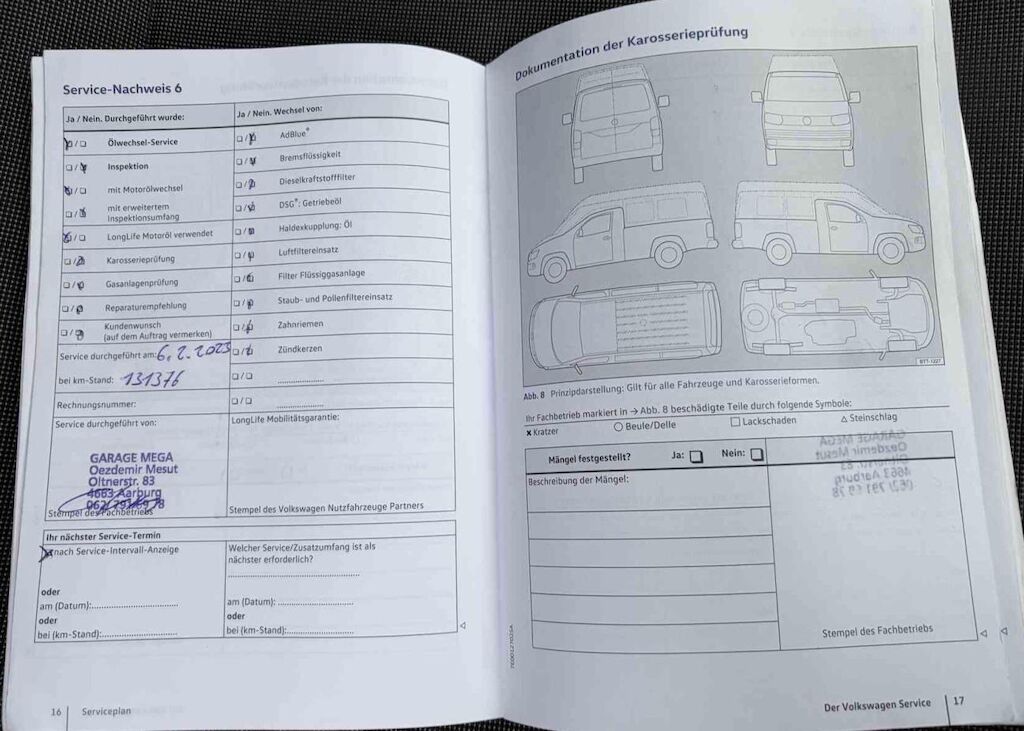 Service-Nachweis 6
Ja / Nein. Durchgeführt wurde:
Ölwechsel-Service
Inspektion
mit Motorölwechsel
mit erweitertem
Inspektionsumfang
LongLife Motoröl verwendet
Karosserieprüfung
Gasanlagenprüfung
Reparaturempfehlung
Kundenwunsch
(auf dem Auftrag vermerken)
Service durchgeführt am: 6.2.2023
bei km-Stand: 131376
Rechnungsnummer:
Ja / Nein. Wechsel von:
AdBlue®
Bremsflüssigkeit
Dieselkraftstofffilter
DSG®: Getriebeöl
Haldexkupplung: Öl
Luftfiltereinsatz
Filter Flüssiggasanlage
Staub- und Pollenfiltereinsatz
Zahnriemen
Zündkerzen
Service durchgeführt von:
GARAGE MEGA
Oezdemir Mesut
Oltnerstr. 83
4663 Aarburg
062/ 791 69 78
Stempel des Fachbetriebs
LongLife Mobilitätsgarantie:
Stempel des Volkswagen Nutzfahrzeuge Partners
Ihr nächster Service-Termin
nach Service-Intervall-Anzeige
oder
am (Datum):
oder
bei (km-Stand):
Welcher Service/Zusatzumfang ist als
nächster erforderlich?
am (Datum):
oder
bei (km-Stand):
16 Serviceplan
Dokumentation der Karosserieprüfung
BTT-1227
Abb. 8 Prinzipdarstellung: Gilt für alle Fahrzeuge und Karosserieformen.
Ihr Fachbetrieb markiert in → Abb. 8 beschädigte Teile durch folgende Symbole:
× Kratzer ○ Beule/Delle □ Lackschaden △ Steinschlag
Mängel festgestellt? Ja: Nein:
Beschreibung der Mängel:
GARAGE MEGA
Oezdemir Mesut
Oltnerstr. 83
4663 Aarburg
062/ 791 69 78
Stempel des Fachbetriebs
Der Volkswagen Service 17